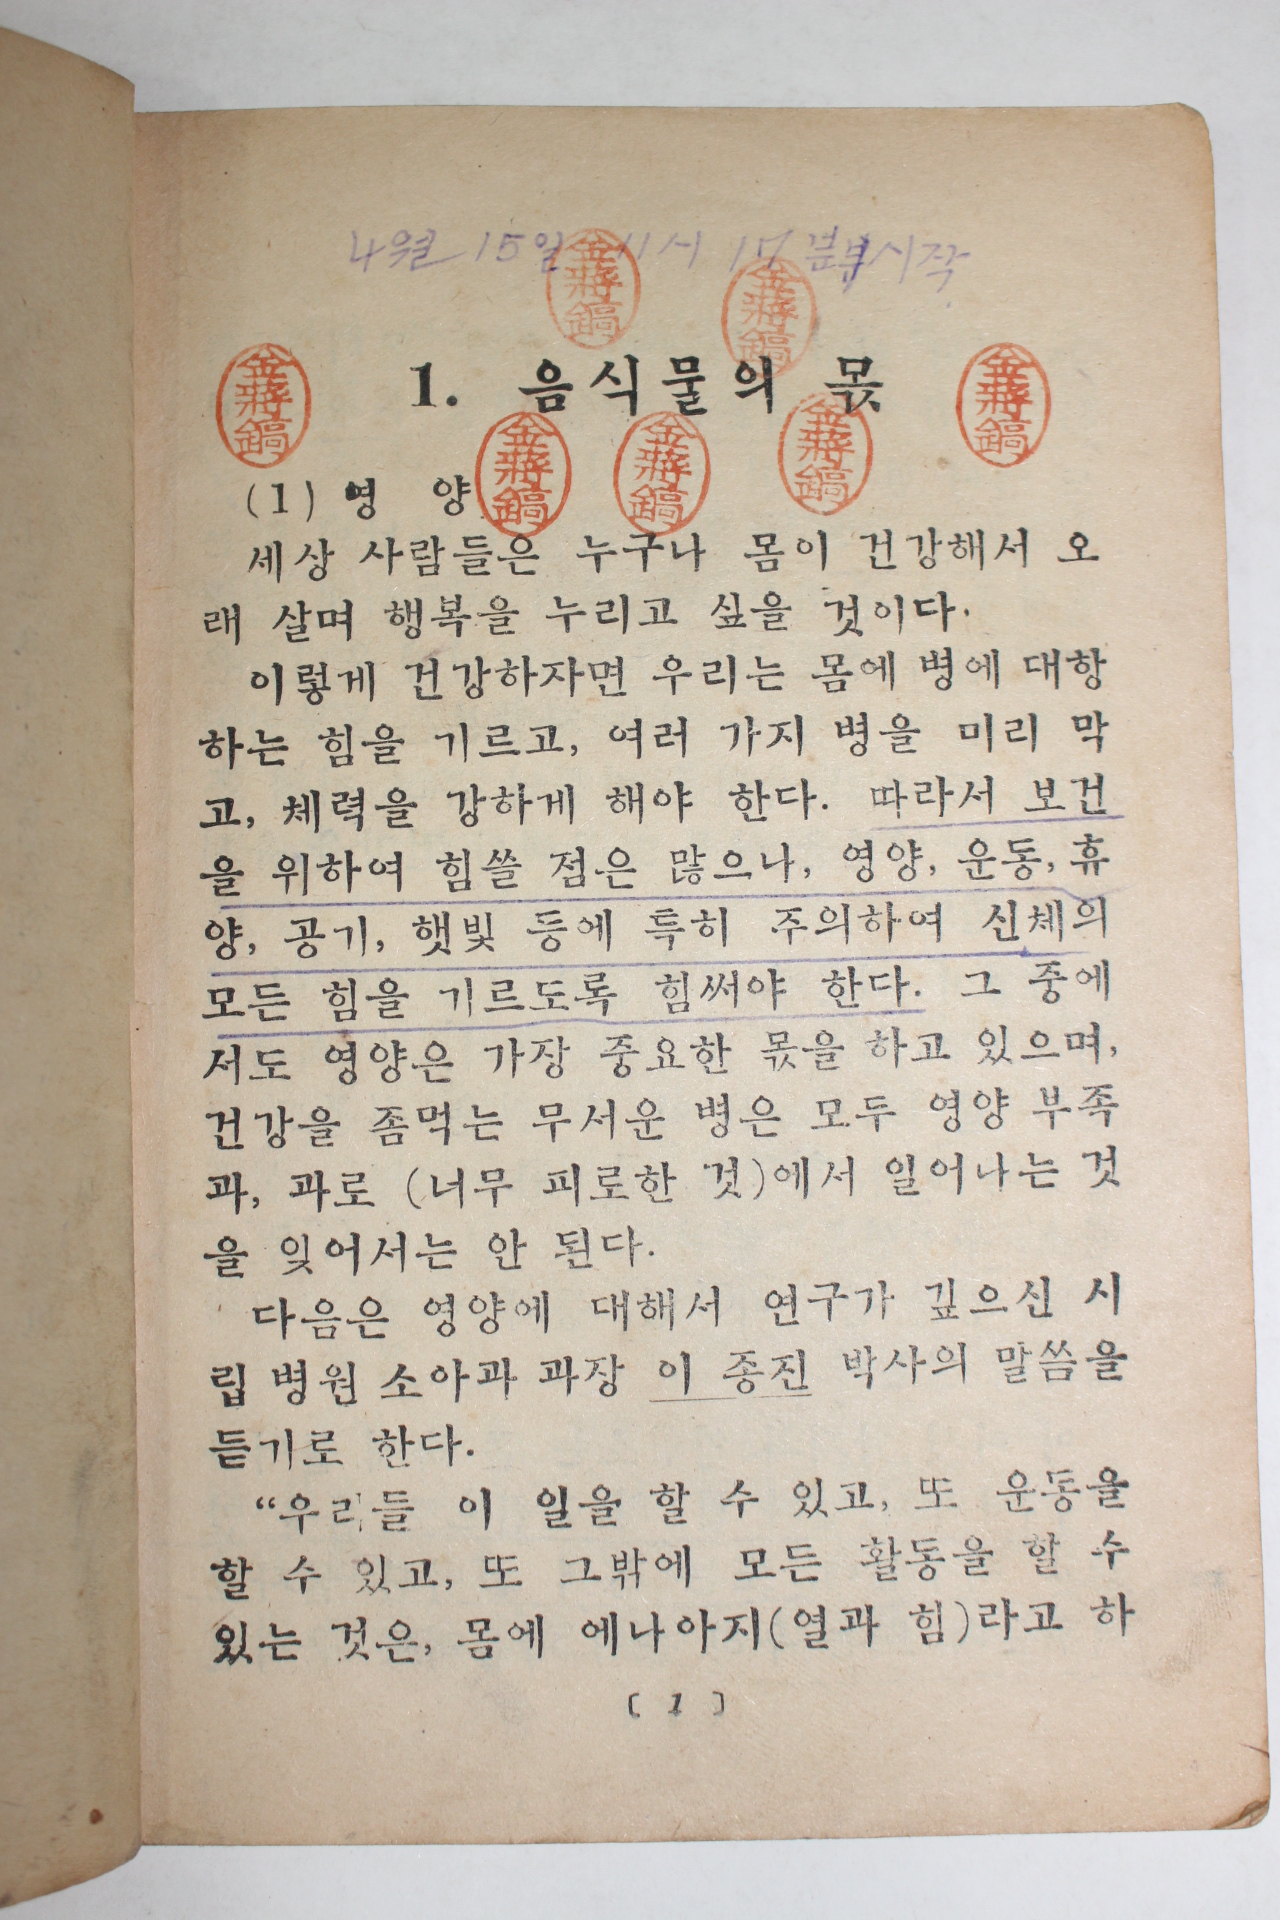 4월 15일 11시 17분부 시작
1. 음식물의 몫
(1) 영 양
세상 사람들은 누구나 몸이 건강해서 오
래 살며 행복을 누리고 싶을 것이다.
이렇게 건강하자면 우리는 몸에 병에 대항
하는 힘을 기르고, 여러 가지 병을 미리 막
고, 체력을 강하게 해야 한다. 따라서 보건
을 위하여 힘쓸 점은 많으나, 영양, 운동, 휴
양, 공기, 햇빛 등에 특히 주의하여 신체의
모든 힘을 기르도록 힘써야 한다. 그 중에
서도 영양은 가장 중요한 몫을 하고 있으며,
건강을 좀먹는 무서운 병은 모두 영양 부족
과, 과로 (너무 피로한 것)에서 일어나는 것
을 잊어서는 안 된다.
다음은 영양에 대해서 연구가 깊으신 시
립 병원 소아과 과장 이 종진 박사의 말씀을
듣기로 한다.
“우리들 이 일을 할 수 있고, 또 운동을
할 수 있고, 또 그밖에 모든 활동을 할 수
있는 것은, 몸에 에나아지(열과 힘)라고 하
〔 1 〕